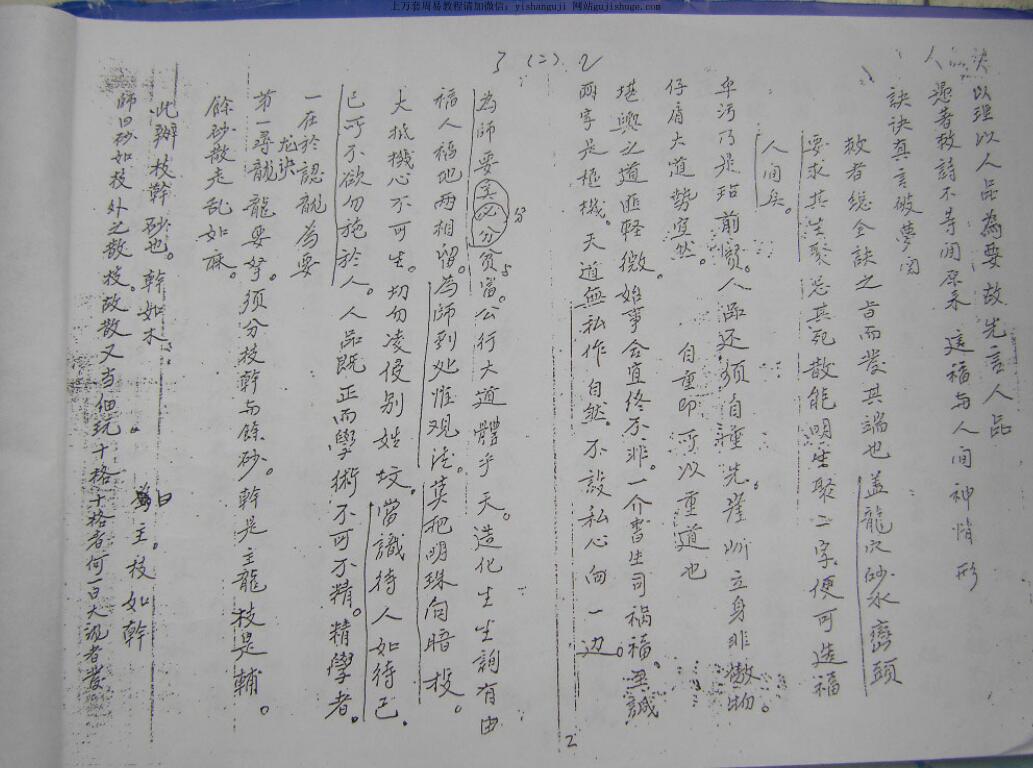 上万套周易教程请加微信：yishanguji 网站gujishuge.com
3 (二) 2
诀以理以人品為要故先言人品
人 愚者救詩不等闲原來 這福与人间神情形
訣诀真言破夢闲
救者总全訣之旨而發其端也 盖龍穴砂水巒頭
要求其生聚忌其死散能明生聚二字便可造福
人间矣。
卑污乃是玷前贤。人品还须自重先。崖岸立身非傲物。
仔肩大道勢宜然。 自重即可以重道也
堪輿之道匪轻微。始事合宜终不非。一介書生司祸福。誠
两字是樞機。天道無私作自然。不設私心向一边。
2
為師要 分貧富。公行大道體乎天。造化生生詢有由
福人福地两相留。為師到处惟观法。莫把明珠向暗投。
大抵機心不可生。切勿凌侵别姓坟。當識待人如待己。
己可不欲勿施於人。人品既正而學術不可不精。精學者。
一在於認龍為要
龙诀
第一尋龍龍要孥。须分枝幹与餘砂。幹是主龍枝是輔。
餘砂散走乱如麻。
此辦枝幹砂也。幹如木 主。枝如幹
師曰砂如枝外之散枝。故散又当细玩十格十格者何一曰大规者發